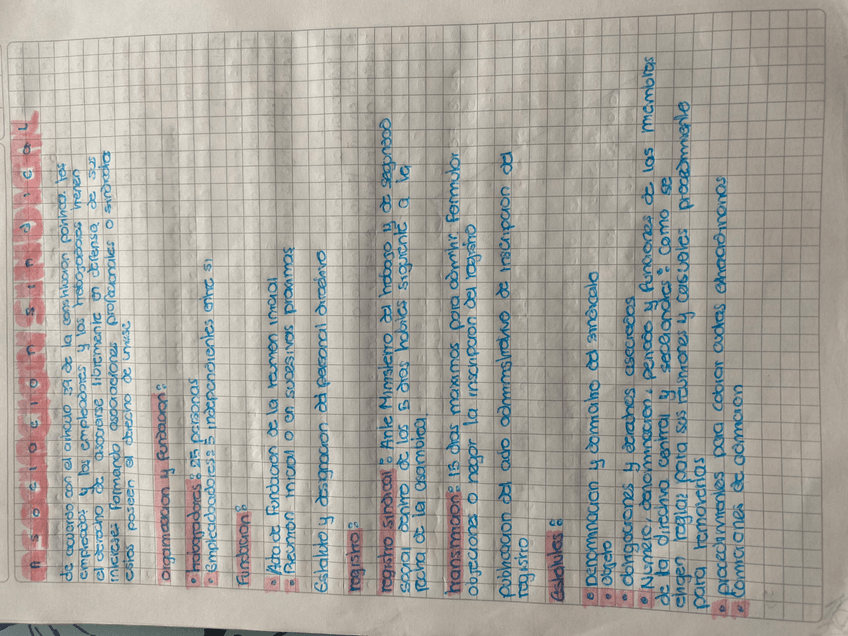 Asociacion sindical
de acuerdo con el articulo 39 de la constitucion politica los
empleados y los empleadores y los trabajadores tienen
el derecho de asociarse libremente en defensa de sus
intereses formando asociaciones profesionales o sindicatos
estos poseen el derecho de unirse
Organizacion y Fundacion:
• trabajadores: 25 personas
• Empleadoadores: 5 independientes entre si
Fundacion:
• Acta de Fundacion de la reunion inicial
• Reunion inicial o en sucesivas proximas
Estatuto y designacion del personal directivo
registro:
registro sindical: Ante Ministerio del trabajo y de seguridad
social dentro de los 5 dias habiles siguiente a la
fecha de la asamblea
transmision: 15 dias maximos para admitir formular
objeciones o negar la inscripcion del registro
publicacion del acto administrativo de inscripcion del
registro
Estatutos:
• Denominacion y domicilio del sindicato
• Objeto
• obligaciones y derechos asociados
• Numero, denominacion, periodo y funciones de los miembros
de la directiva central y seccionales: como se
eligen reglas para sus reuniones y causales procedimiento
para removerlas
• procedimientos para cobrar cuotas extraordinarias
• Condiciones de admicion